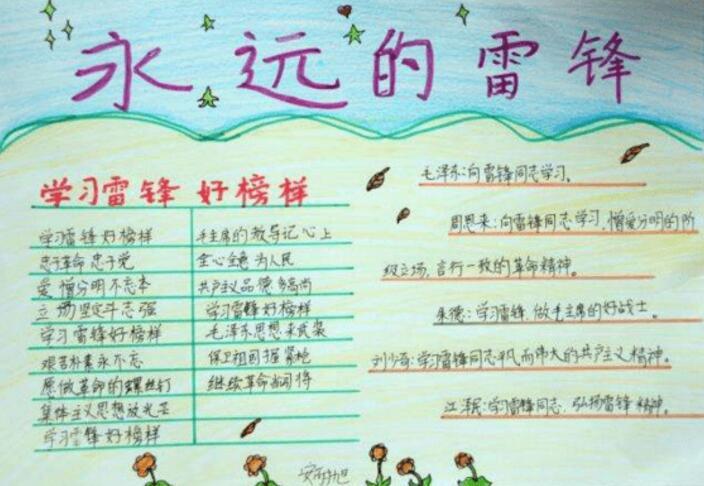 永远的雷锋
学习雷锋 好榜样
学习雷锋好榜样
忠于革命忠于党
爱憎分明不忘本
立场坚定斗志强
学习雷锋好榜样
艰苦朴素永不忘
愿做革命的螺丝钉
集体主义思想放光芒
学习雷锋好榜样
毛主席的教导记心上
全心全意为人民
共产主义品德多高尚
学习雷锋好榜样
毛泽东思想来武装
保卫祖国握紧枪
继续革命当闯将
毛泽东:向雷锋同志学习。
周恩来:向雷锋同志学习,憎爱分明的阶
级立场,言行一致的革命精神。
朱德:学习雷锋,做毛主席的好战士。
刘少奇:学习雷锋同志平凡而伟大的共产主义精神。
江泽民:学习雷锋同志,弘扬雷锋精神。